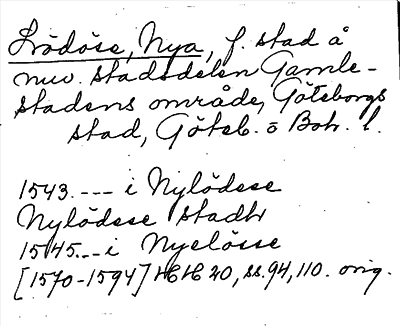 Lödöse, Nya, f. stad å
nuv. stadsdelen Gamle-
stadens område, Göteborgs
stad, Göteb. o Boh. l.
1543. --- i Nylödese
Nylödsse stadh
1545. -- i Nyelösse
[1570-1594] HH 20, ss. 94, 110. orig.